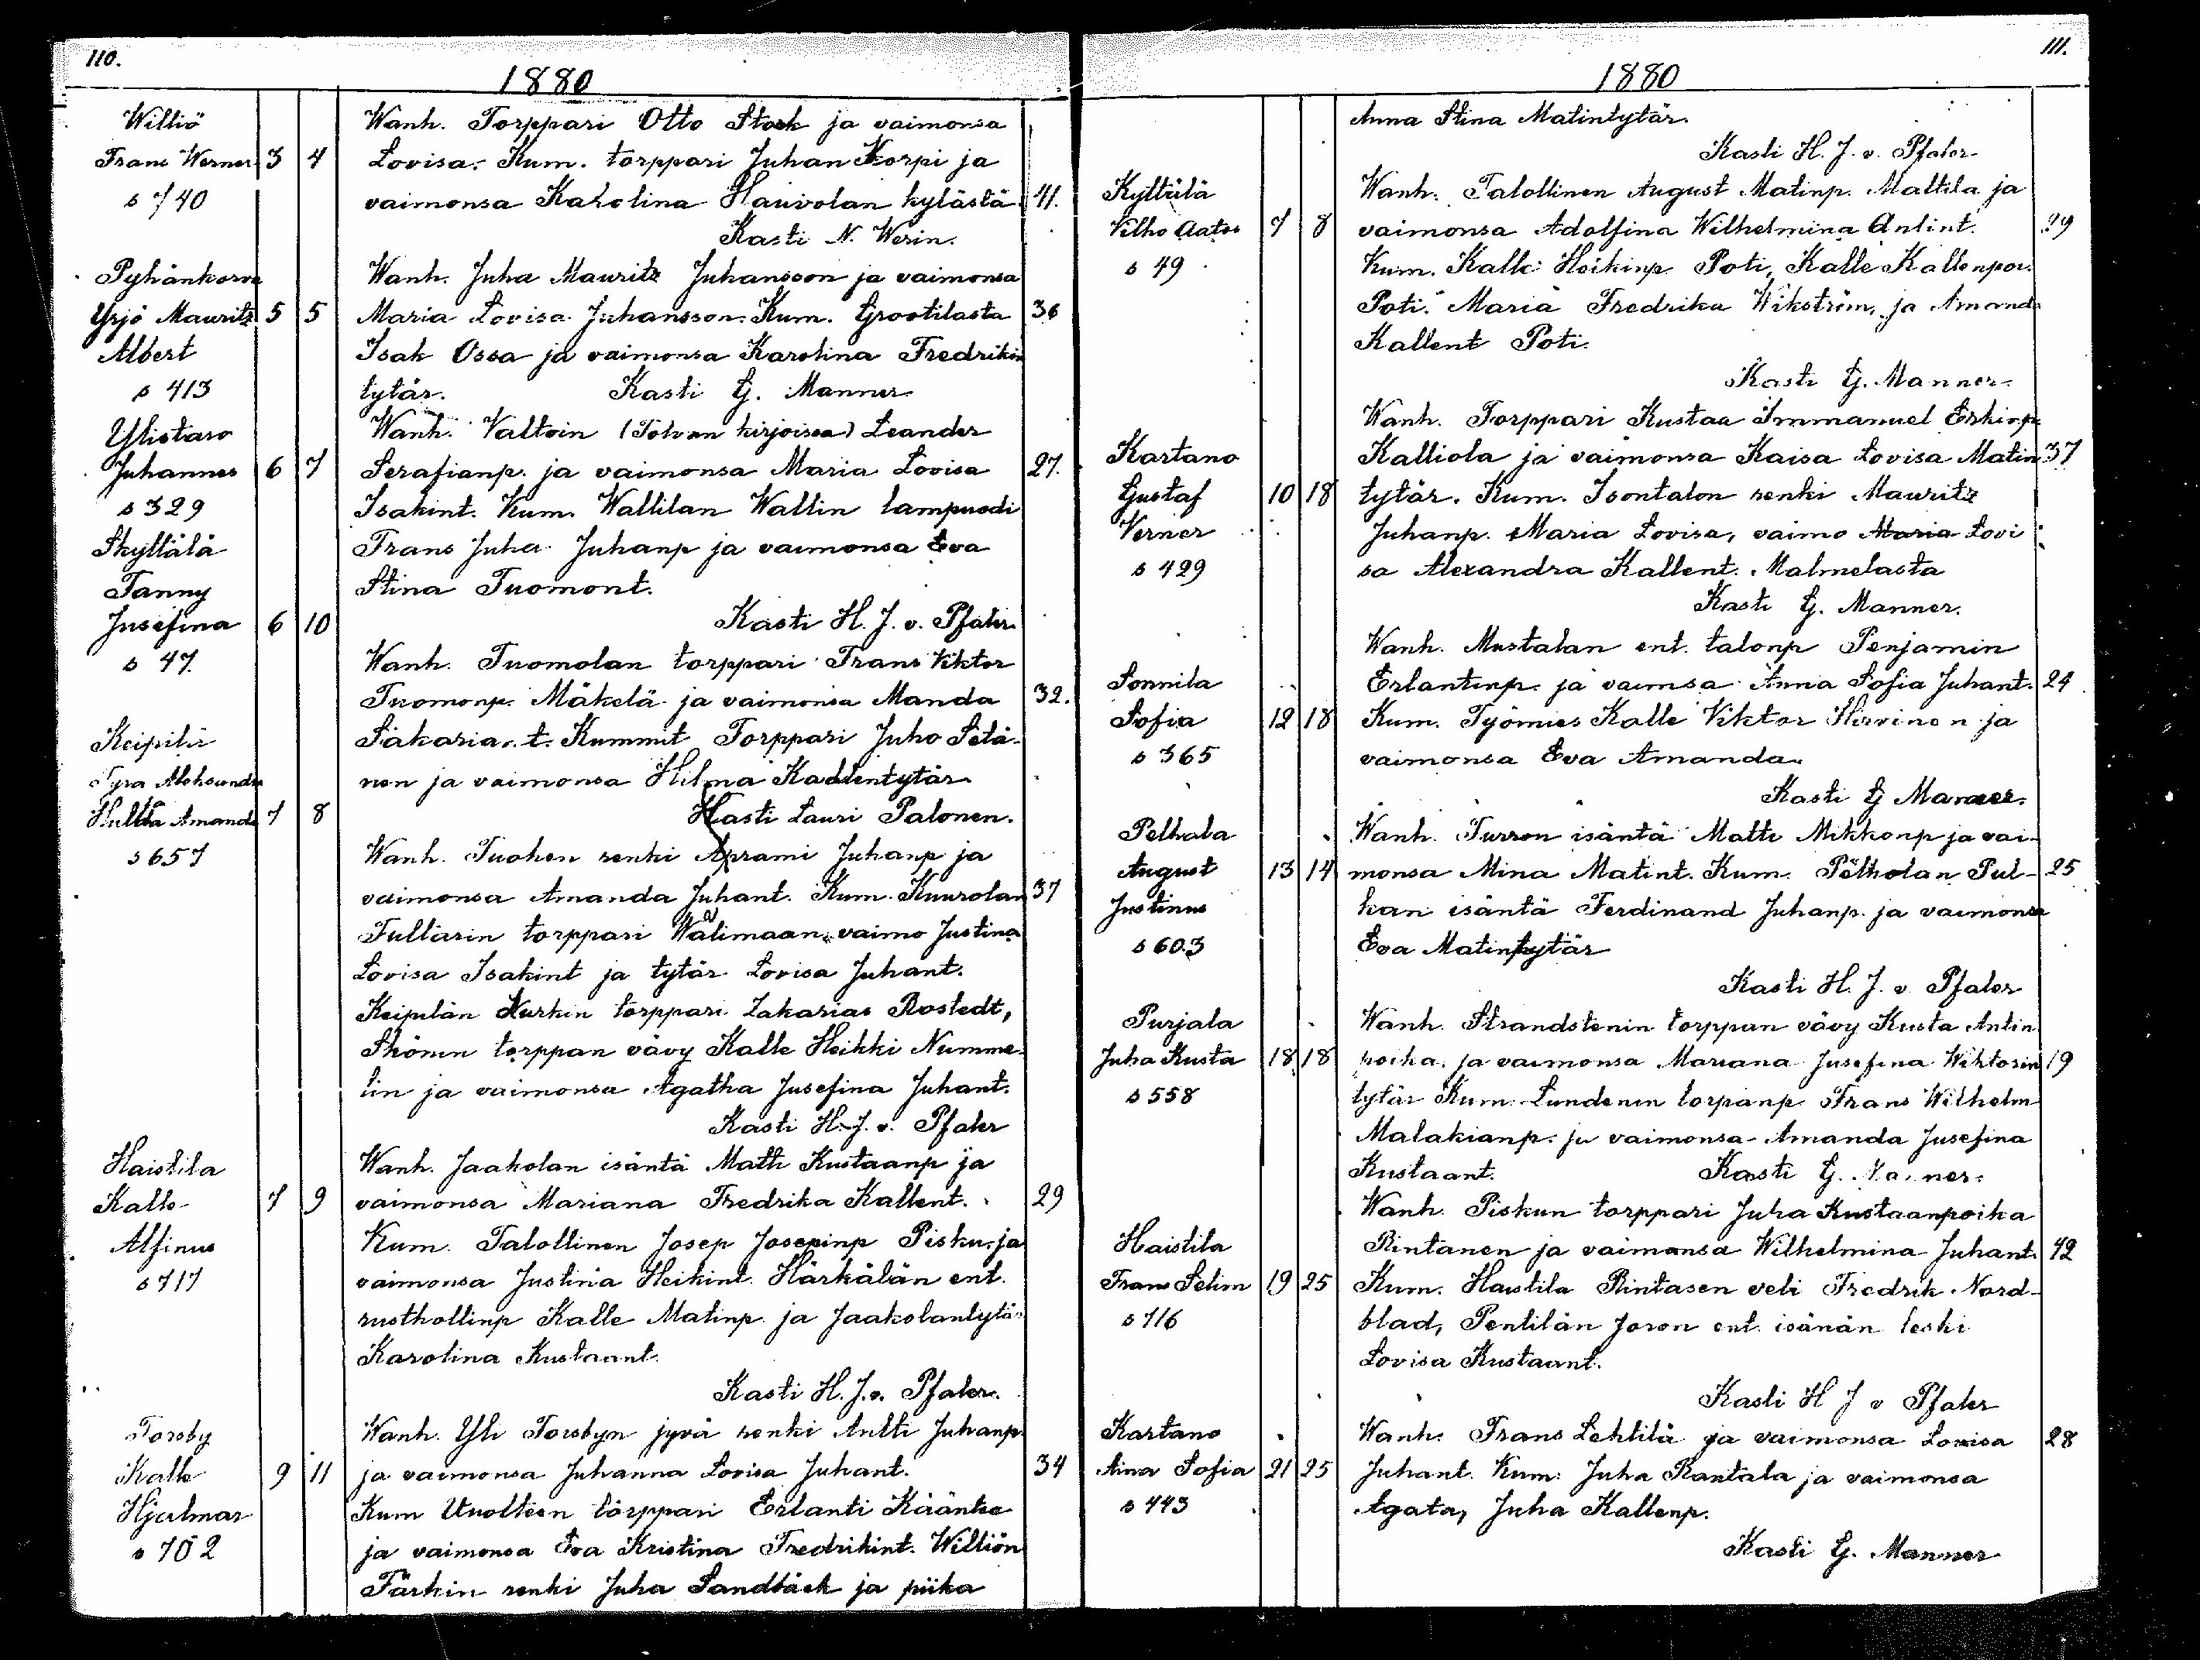 110.
1880
Williö
Frans Werner 3 4
s 740
Wanh. Torppari Otto Stock ja vaimonsa
Lovisa. Kum. torppari Juhan Korpi ja
vaimonsa Karolina Hauvolan kylästä 41.
Kasti N. Werin.
Pyhänkorva
Yrjö Mauritz 5 5
Albert
s 413
Wanh. Juha Mauritz Juhansson ja vaimonsa
Maria Lovisa Juhansson. Kum. Grootilasta 36
Isak Ossa ja vaimonsa Karolina Fredrikin
tytär. Kasti G. Manner
Ylistaro
Juhannes 6 7
s 329
Wanh. Valtoin (Tölvan kirjoissa) Leander
Serafianp. ja vaimonsa Maria Lovisa 27.
Isakint. Kum. Wallilan Wallin lampuodi
Frans Juha Juhanp ja vaimonsa Eva
Stina Tuomont.
Kasti H. J. v. Pfaler.
Skyttälä
Fanny
Jusefina 6 10
s 47.
Wanh. Tuomolan torppari Frans Viktor
Tuomonp. Mäkelä ja vaimonsa Manda 32.
Sakaria. t. Kummit Torppari Juho Setä-
nen ja vaimonsa Hilma Kallentytär
Kasti Lauri Palonen.
Keipilä
Fyra Aleksandra
Hulda Amanda 7 8
s 657
Wanh. Tuohen renki Aprami Juhanp ja
vaimonsa Amanda Juhant. Kum. Kuurolan 37
Tullarin torppari Walimaan vaimo Justina
Lovisa Isakint ja tytär Lovisa Juhant.
Keipilän Kurkin torppari Zakarias Rostedt,
Skönin torppan vävy Kalle Heikki Numme-
lin ja vaimonsa Agatha Jusefina Juhant.
Kasti H. J. v. Pfaler
Haistila
Kalle 7 9
Alfinus
s 717
Wanh. Jaakolan isäntä Matti Kustaanp ja
vaimonsa Mariana Fredrika Kallent. 29
Kum. Talollinen Josep Josepinp Pisku ja
vaimonsa Justina Heikint. Härkälän ent.
rusthollinp Kalle Matinp ja Jaakolantytä
Karolina Kustaant.
Kasti H. J. v. Pfaler.
Torsby
Kalle 9 11
Hjalmar
s 702
Wanh. Yli Torsbyn jyvä renki Antti Juhanp
ja vaimonsa Juhanna Lovisa Juhant. 34
Kum Uuolteen torppari Erlanti Käänke
ja vaimonsa Eva Kristina Fredrikint. Williön
Färkin renki Juha Sandbäck ja piika
111.
1880
Anna Stina Matintytär.
Kasti H. J. v. Pfaler
Kyltälä
Vilho Aatos 7 8
s 49
Wanh. Talollinen August Matinp. Mattila ja
vaimonsa Adolfina Wilhelmina Antint. 29
Kum. Kalle Heikinp Poti, Kalle Kallenpoi.
Poti. Maria Fredrika Wikström, ja Amanda
Kallent Poti.
Kasti G. Manner.
Kartano
Gustaf 10 18
Verner
s 429
Wanh. Torppari Kustaa Immanuel Erkinp
Kalliola ja vaimonsa Kaisa Lovisa Matin 37
tytär. Kum. Isontalon renki Mauritz
Juhanp. Maria Lovisa, vaimo Maria Lovi
sa Alexandra Kallent. Malmelasta
Kasti G. Manner.
Sonnila
Sofia 12 18
s 365
Wanh. Mustalan ent. talonp Penjamin
Erlantinp. ja vaimsa Anna Sofia Juhant. 24
Kum. Työmies Kalle Viktor Hirvinen ja
vaimonsa Eva Amanda.
Kasti G Manner.
Pelhala
August 13 14
Justinus
s 603
Wanh. Turron isäntä Matti Mikkonp ja vai-
monsa Mina Matint. Kum. Pelholan Pul- 25
kan isäntä Ferdinand Juhanp. ja vaimonsa
Eva Matintytär
Kasti H. J. v. Pfaler
Purjala
Juha Kusta 18 18
s 558
Wanh. Strandstenin torppan vävy Kusta Antin
poika ja vaimonsa Mariana Jusefina Wiktorin 19
tytär Kum. Lundenin torpanp Frans Wilhelm
Malakianp. ja vaimonsa Amanda Jusefina
Kustaant. Kasti G. Manner.
Haistila
Frans Selim 19 25
s 716
Wanh. Piskun torppari Juha Kustaanpoika
Rintanen ja vaimonsa Wilhelmina Juhant. 42
Kum. Haistila Rintasen veli Fredrik Nord-
blad, Pentilän Joron ent. isänän leski
Lovisa Kustaant.
Kasti H J v Pfaler
Kartano
Aina Sofia 21 25
s 443
Wanh. Frans Lehtilä ja vaimonsa Lovisa 28
Juhant. Kum. Juha Rantala ja vaimonsa
Agata, Juha Kallenp.
Kasti G. Manner